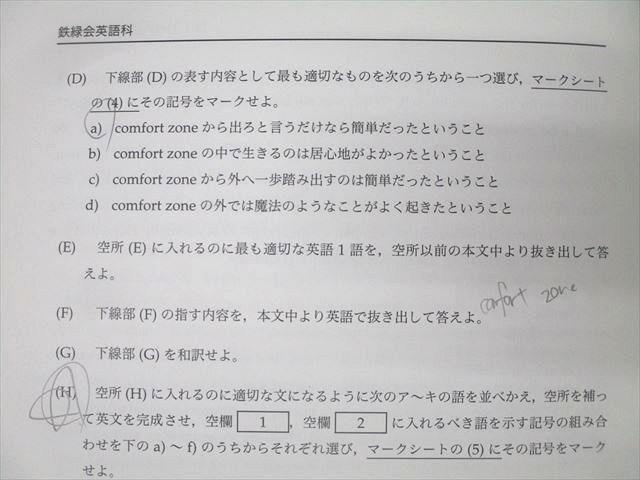 鉄緑会英語科
(D) 下線部 (D) の表す内容として最も適切なものを次のうちから一つ選び，マークシート
の (4) にその記号をマークせよ。
a) comfort zone から出ろと言うだけなら簡単だったということ
b) comfort zone の中で生きるのは居心地がよかったということ
c) comfort zone から外へ一歩踏み出すのは簡単だったということ
d) comfort zone の外では魔法のようなことがよく起きたということ
(E) 空所 (E) に入れるのに最も適切な英語 1 語を，空所以前の本文中より抜き出して答
えよ。
comfort zone
(F) 下線部 (F) の指す内容を，本文中より英語で抜き出して答えよ。
(G) 下線部 (G) を和訳せよ。
(H) 空所 (H) に入れるのに適切な文になるように次のア〜キの語を並べかえ，空所を補っ
て英文を完成させ，空欄 1 ，空欄 2 に入れるべき語を示す記号の組み合
わせを下の a) 〜 f) のうちからそれぞれ選び，マークシートの (5) にその記号をマーク
せよ。